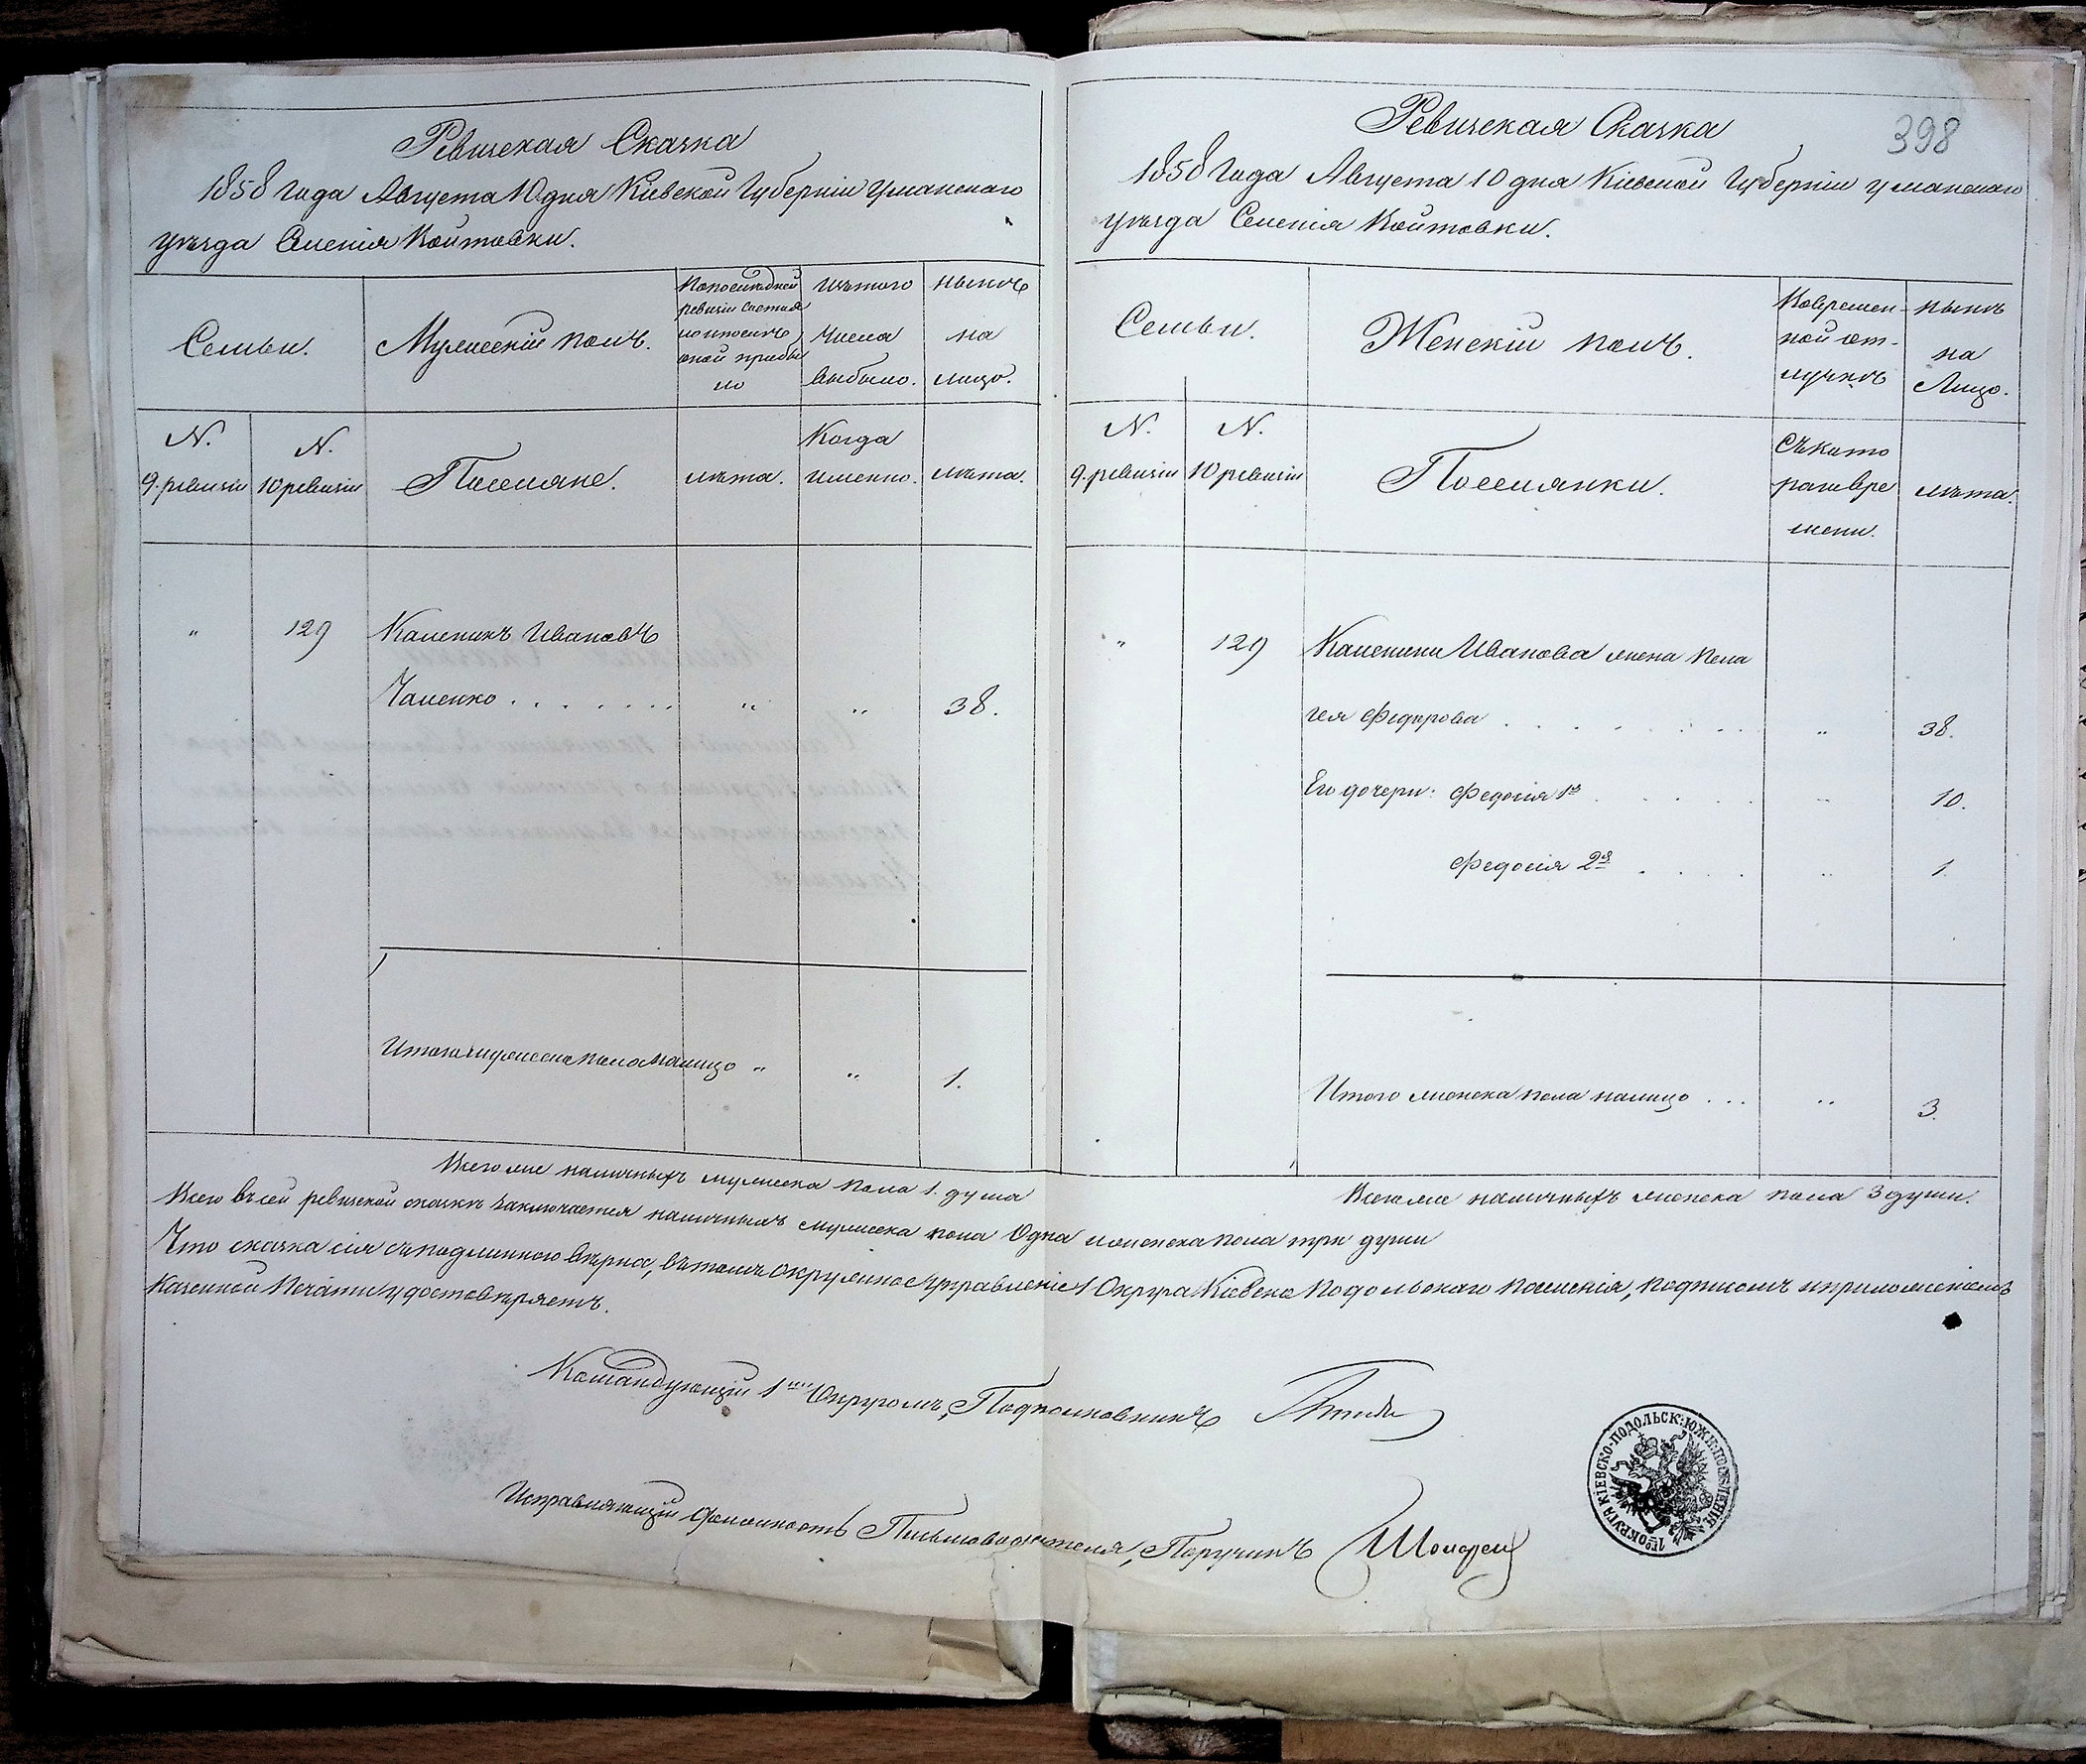 Ревизская Сказка
1858 Года Августа 10 дня Кіевской Губерніи Уманскаго
уѣзда Селенія Войтовки.
Семьи.
Мужескій полъ.
По последней
ревизіи состоя
ло и после
оной прибы
ло
Изъ того
числа
выбыло.
Нынѣ
на
лицо.
N.
9. ревизіи
N.
10 ревизіи
Поселяне.
лѣта.
Когда
именно.
лѣта.
"
129
Каленикъ Ивановъ
Чаленко . . . . . . .
"
"
38.
Итого мужеска пола налицо
"
"
1.
Всего же наличныхъ мужеска пола 1. душа
Ревизская Сказка
398
1858 Года Августа 10 дня Кіевской Губерніи Уманскаго
уѣзда Селенія Войтовки.
Семьи.
Женскій полъ.
Во времен-
ной от-
лучкѣ
Нынѣ
на
Лицо.
N.
9. ревизіи
N.
10 ревизіи
Поселянки.
Съ като
раго вре
мени.
лѣта.
"
129
Каленика Иванова жена Пела
гея Федорова . . . . . . .
"
38.
Его дочери: Федосія 1я . . . . .
"
10.
Федосія 2я . . . .
"
1.
Итого женска пола налицо . . .
"
3.
Всего же наличныхъ женска пола 3 души.
Всего въ сей ревизской сказкѣ заключается наличныхъ мужеска пола Одна и женска пола три души
Что сказка сія съ подлинною вѣрна, въ томъ Окружное Управленіе 1 Округа Кіевско Подольскаго Поселенія, подписомъ и приложеніемъ
Казенной Печати удостовѣряетъ.
Командующій 1мъ Округомъ, Подполковникъ
Исправляющій Должность Письмоводителя, Поручикъ
1го ОКРУГА КІЕВСКО-ПОДОЛЬСК: ЮЖН: ПОСЕЛЕНІЯ